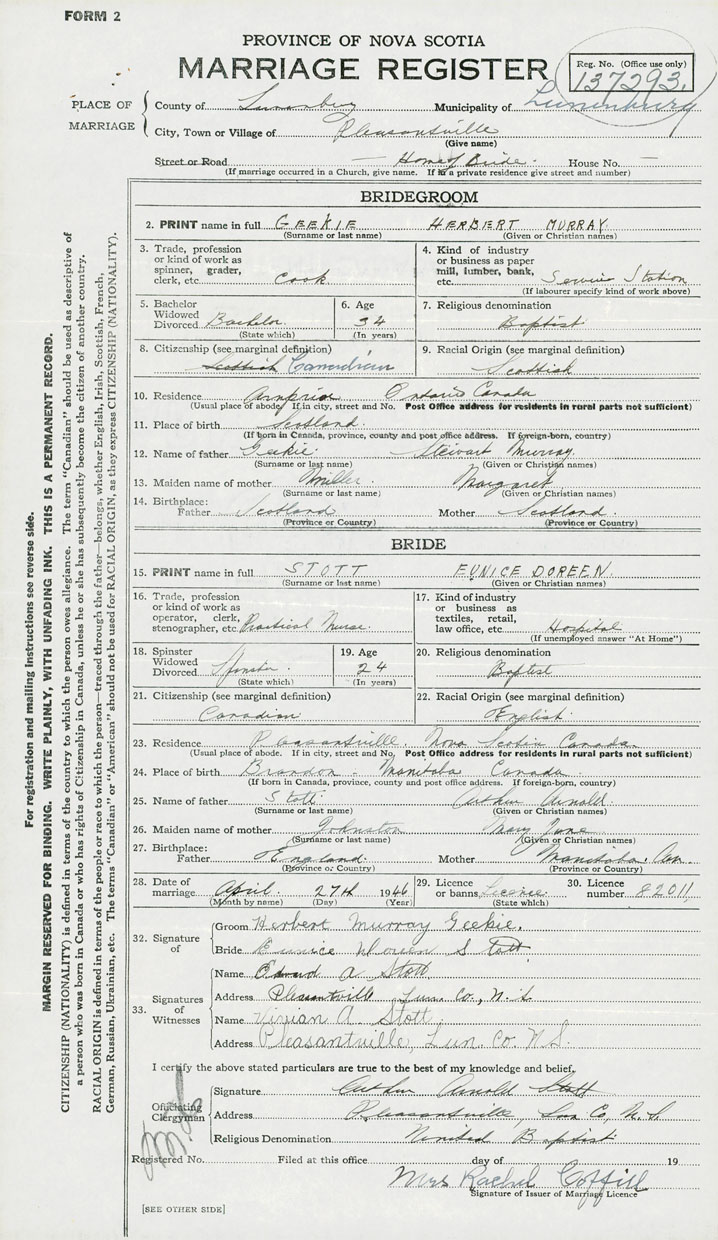 FORM 2
PROVINCE OF NOVA SCOTIA
MARRIAGE REGISTER
Reg. No. (Office use only)
137293.
PLACE OF MARRIAGE
County of Lunenburg Municipality of Lunenburg
City, Town or Village of Pleasantville
(Give name)
Street or Road — Home of Bride. House No. —
(If marriage occurred in a Church, give name. If in a private residence give street and number)
BRIDEGROOM
2. PRINT name in full GEEKIE HERBERT MURRAY
(Surname or last name) (Given or Christian names)
3. Trade, profession
or kind of work as
spinner, grader,
clerk, etc. Cook
4. Kind of industry
or business as paper
mill, lumber, bank,
etc. Service Station
(If labourer specify kind of work above)
5. Bachelor
Widowed
Divorced Bachelor
(State which)
6. Age
34
(In years)
7. Religious denomination
Baptist
8. Citizenship (see marginal definition)
Scottish Canadian
9. Racial Origin (see marginal definition)
Scottish
10. Residence Arnprior Ontario Canada
(Usual place of abode. If in city, street and No. Post Office address for residents in rural parts not sufficient)
11. Place of birth Scotland
(If born in Canada, province, county and post office address. If foreign-born, country)
12. Name of father Geekie Stewart Murray
(Surname or last name) (Given or Christian names)
13. Maiden name of mother Miller Margaret
(Surname or last name) (Given or Christian names)
14. Birthplace:
Father Scotland Mother Scotland
(Province or Country) (Province or Country)
BRIDE
15. PRINT name in full STOTT EUNICE DOREEN
(Surname or last name) (Given or Christian names)
16. Trade, profession
or kind of work as
operator, clerk,
stenographer, etc. Practical Nurse
17. Kind of industry
or business as
textiles, retail,
law office, etc. Hospital
(If unemployed answer "At Home")
18. Spinster
Widowed
Divorced Spinster
(State which)
19. Age
24
(In years)
20. Religious denomination
Baptist
21. Citizenship (see marginal definition)
Canadian
22. Racial Origin (see marginal definition)
English
23. Residence Pleasantville Nova Scotia Canada
(Usual place of abode. If in city, street and No. Post Office address for residents in rural parts not sufficient)
24. Place of birth Brandon Manitoba Canada
(If born in Canada, province, county and post office address. If foreign-born, country)
25. Name of father Stott Arthur Arnold
(Surname or last name) (Given or Christian names)
26. Maiden name of mother Johnston Mary Jane
(Surname or last name) (Given or Christian names)
27. Birthplace:
Father England Mother Manitoba, Can
(Province or Country) (Province or Country)
28. Date of
marriage April 27th 1946
(Month by name) (Day) (Year)
29. Licence
or banns License
(State which)
30. Licence
number 82011
32. Signature of
Groom Herbert Murray Geekie.
Bride Eunice Doreen Stott
33. Signatures of Witnesses
Name A Stott
Address Pleasantville Lun. Co., N.S.
Name Vivian A. Stott
Address Pleasantville, Lun. Co. N.S.
I certify the above stated particulars are true to the best of my knowledge and belief.
Officiating Clergyman
Signature Arthur Arnold Stott
Address Pleasantville, Lun Co, N.S
Religious Denomination United Baptist
Registered No. Filed at this office day of 19
Mrs Rachel Coffill
Signature of Issuer of Marriage Licence
[SEE OTHER SIDE]
For registration and mailing instructions see reverse side.
MARGIN RESERVED FOR BINDING. WRITE PLAINLY, WITH UNFADING INK. THIS IS A PERMANENT RECORD.
CITIZENSHIP (NATIONALITY) is defined in terms of the country to which the person owes allegiance. The term "Canadian" should be used as descriptive of
a person who was born in Canada or who has rights of Citizenship in Canada, unless he or she has subsequently become the citizen of another country.
RACIAL ORIGIN is defined in terms of the people or race to which the person—traced through the father—belongs, whether English, Irish, Scottish, French,
German, Russian, Ukrainian, etc. The terms "Canadian" or "American" should not be used for RACIAL ORIGIN, as they express CITIZENSHIP (NATIONALITY).